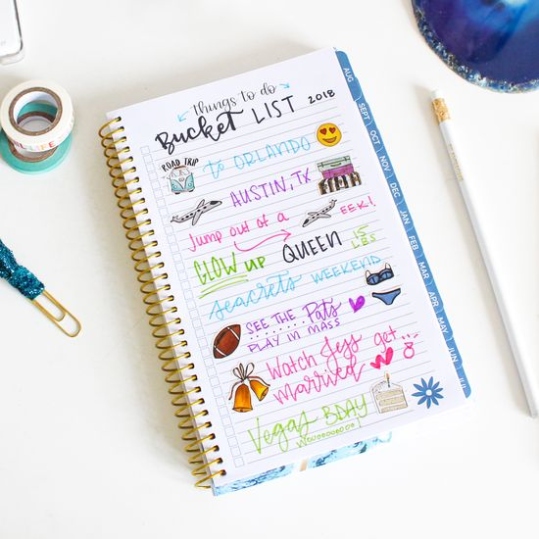 things to do
Bucket LIST 2018
ROAD TRIP
to ORLANDO
AUSTIN, TX
Jump out of a EEK!
GLOW UP QUEEN 15 LBS
seacrets WEEKEND
SEE THE Pats
PLAY IN MASS
Watch Jess get...
married
Vegas BDAY
AUG
SEPT
OCT
NOV
DEC
JAN
FEB
MAR
APR
MAY
JUN
LIFE